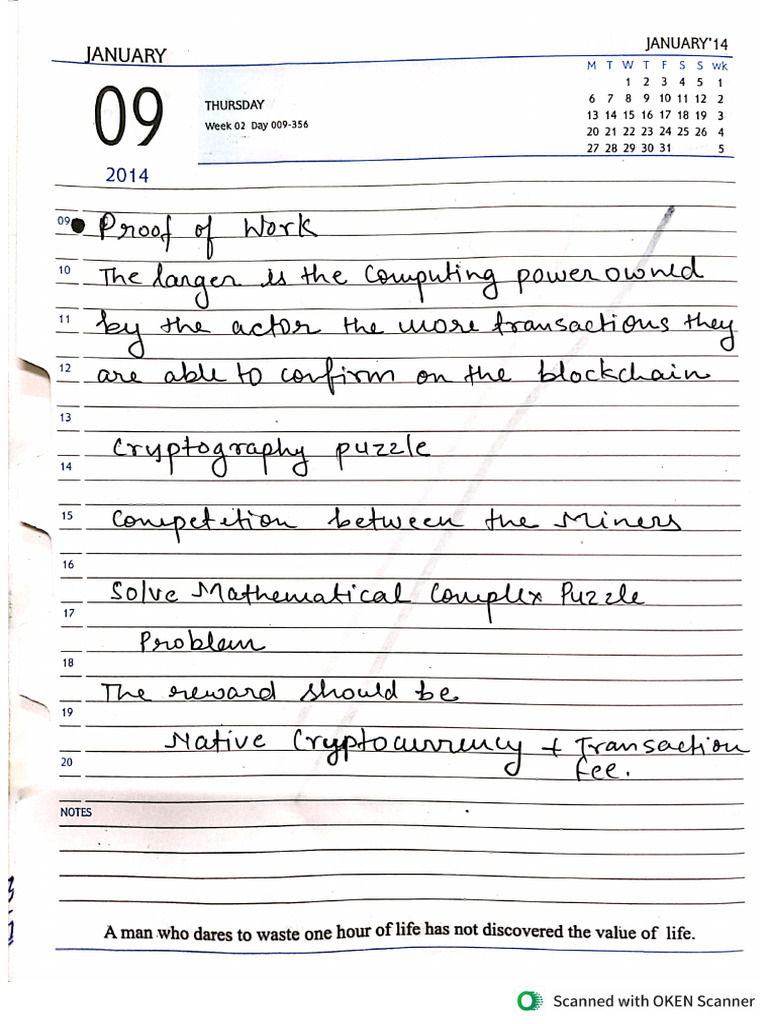 JANUARY
JANUARY'14
M T W T F S S wk
1 2 3 4 5 1
09
THURSDAY
6 7 8 9 10 11 12 2
Week 02 Day 009-356
13 14 15 16 17 18 19 3
20 21 22 23 24 25 26 4
27 28 29 30 31 5
2014
09 Proof of Work
10 The larger is the Computing power owned
11 by the actor the more transactions they
12 are able to confirm on the blockchain
13
Cryptography puzzle
14
15 Competition between the Miners
16
Solve Mathematical Complex Puzzle
17
Problem
18
The reward should be
19
Native Cryptocurrency + Transaction
20 fee.
NOTES
A man who dares to waste one hour of life has not discovered the value of life.
Scanned with OKEN Scanner